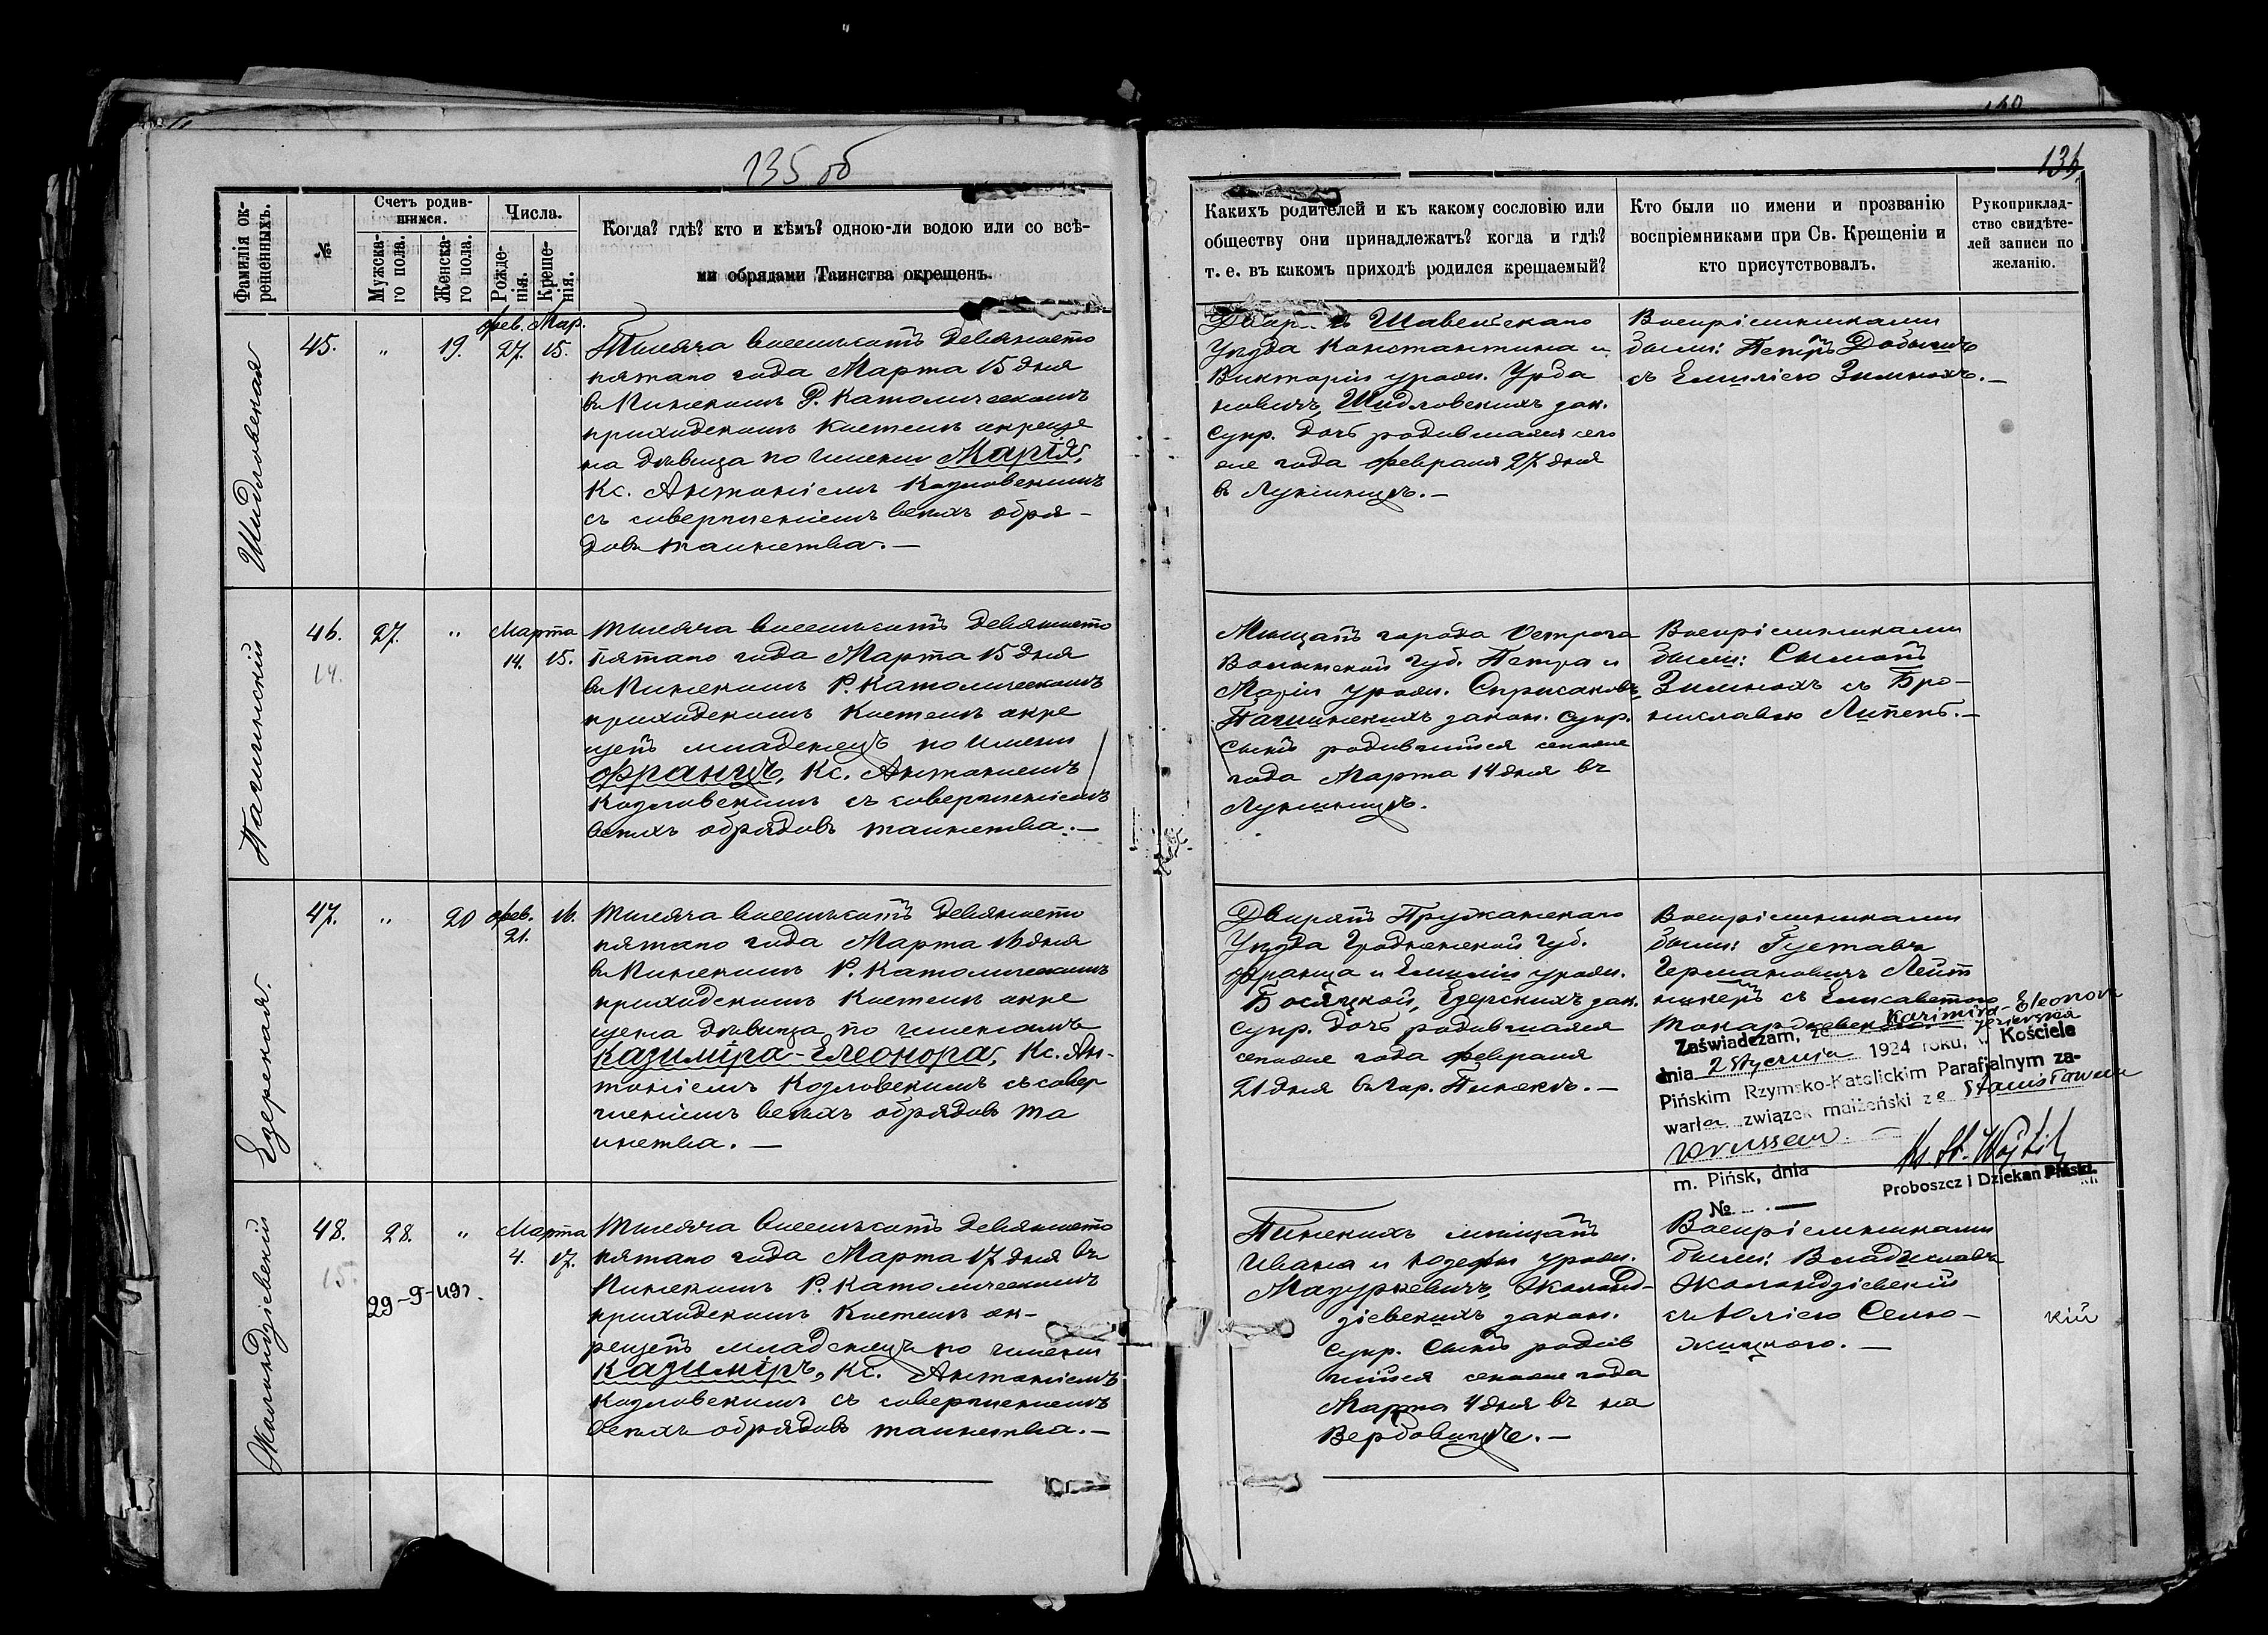 135 об
136.
Фамилія ок-
рещенныхъ.
№
Счетъ родив-
шимся.
Мужска-
го пола.
Женска-
го пола.
Числа.
Рожде-
нія.
Креще-
нія.
Когда? гдѣ? кто и кѣмъ? одною-ли водою или со всѣ-
ми обрядами Таинства окрещенъ.
Какихъ родителей и къ какому сословію или
обществу они принадлежатъ? когда и гдѣ?
т. е. въ какомъ приходѣ родился крещаемый?
Кто были по имени и прозванію
воспріемниками при Св. Крещеніи и
кто присутствовалъ.
Рукоприклад-
ство свидѣте-
лей записи по
желанію.
Шидловская
45.
"
19.
Фев. Мар.
27. 15.
Тысяча восемьсотъ девяносто
пятаго года Марта 15 дня
въ Пинскомъ Р. Католическомъ
приходскомъ Костелѣ окреще
на дѣвица по имени Марія,
Кс. Антоніемъ Козловскимъ
съ совершеніемъ всѣхъ обря-
довъ таинства.—
Шавельскаго
Уѣзда Константина и
Викторіи урожд. Урба
новичъ, Шидловскихъ зак.
супр. дочь родившаяся сего
же года Февраля 27 дня
въ Лунинцѣ.—
Воспріемниками
были: Петръ
съ Емиліею
Пашинскій
46.
14.
27.
"
Марта
14. 15.
Тысяча восемьсотъ девяносто
пятаго года Марта 15 дня
въ Пинскомъ Р. Католическомъ
приходскомъ Костелѣ окре
щенъ младенецъ по имени
Францъ, Кс. Антоніемъ
Козловскимъ съ совершеніемъ
всѣхъ обрядовъ таинства.—
Мѣщанъ города Острога
Волынской Губ. Петра и
Маріи урожд.
Пашинскихъ закон. супр.
сынъ родившійся сегоже
года Марта 14 дня въ
Лунинцѣ.
Воспріемниками
были:
съ Бро-
ниславою
Езерская.
47.
"
20
Фев. 16.
21.
Тысяча восемьсотъ девяносто
пятаго года Марта 16 дня
въ Пинскомъ Р. Католическомъ
приходскомъ Костелѣ окре
щена дѣвица по именамъ
Казиміра-Елеонора, Кс. Ан-
тоніемъ Козловскимъ съ совер
шеніемъ всѣхъ обрядовъ та
инства.—
Дворянъ Пружанскаго
Уѣзда Гродненской Губ.
Франца и Емиліи урожд.
Езерскихъ зак.
супр. дочь родившаяся
сегоже года Февраля
21 дня въ гор. Пинскѣ.—
Воспріемниками
были: Густавъ
Германовичъ
съ Елисаветою
Zaświadczam, że Kazimira-Eleonora
Jezierska
dnia 2 Stycznia 1924 roku, w Kościele
Pińskim Rzymsko-Katolickim Parafjalnym za-
warła związek małżeński ze Stanisławem
m. Pińsk, dnia
Proboszcz i Dziekan Piński.
№ .—
Жолондзіевскій
48.
15.
28.
"
Марта
4. 17.
Тысяча восемьсотъ девяносто
пятаго года Марта 17 дня въ
Пинскомъ Р. Католическомъ
приходскомъ Костелѣ ок-
рещенъ младенецъ по имени
Казиміръ, Кс. Антоніемъ
Козловскимъ съ совершеніемъ
всѣхъ обрядовъ таинства.—
Пинскихъ мѣщанъ
Ивана и Юзефы урожд.
Мазуркевичъ, Жолонд-
зіевскихъ закон.
супр. сынъ родив
шійся сегоже года
Марта 4 дня въ на
Вербовицѣ.—
Воспріемниками
были: Владиславъ
Жолондзіевскій
съ Юліею
кій